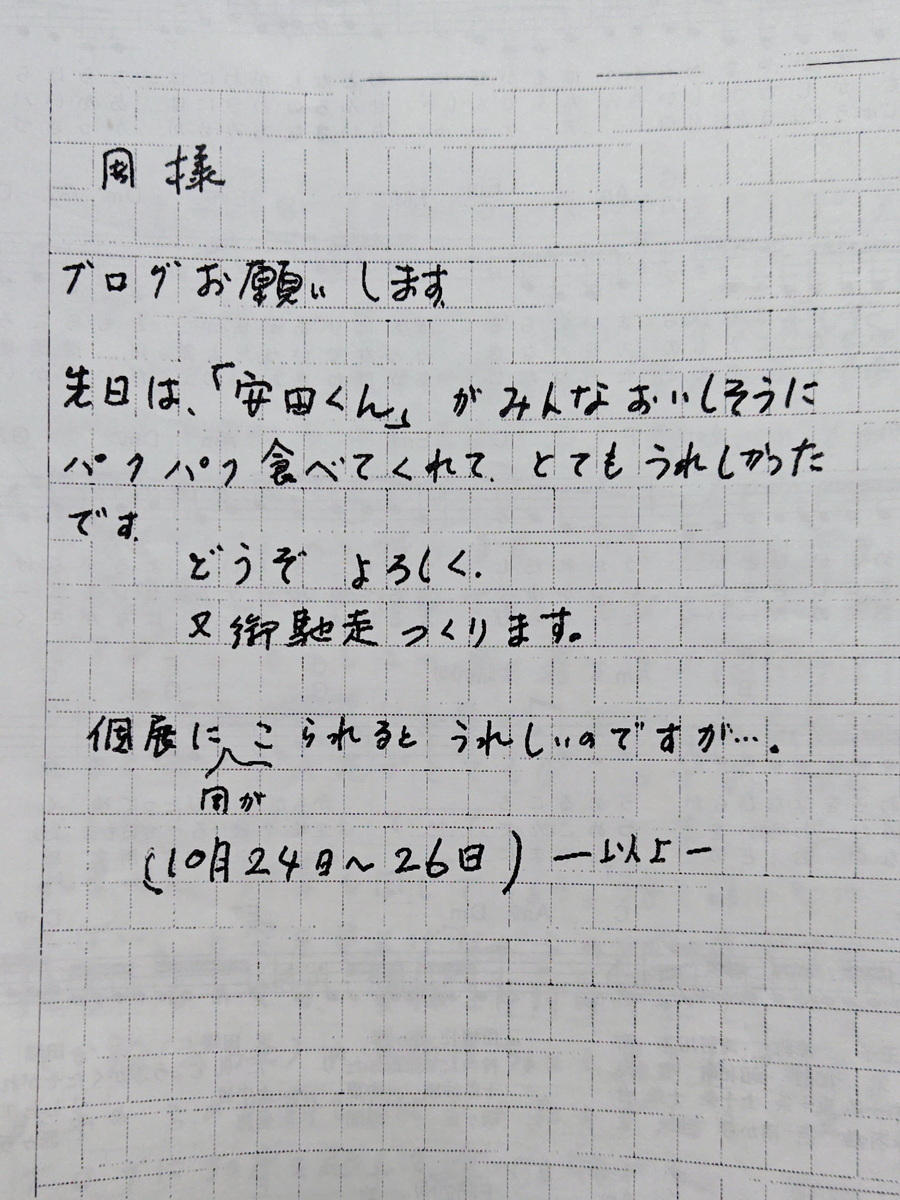 周 様
ブログお願いします
先日は、「安田くん」がみんなおいしそうに
パクパク食べてくれて、とてもうれしかった
です。
どうぞ よろしく.
又御馳走つくります。
個展に こられるとうれしいのですが….
周が
(10月24日〜26日) ー以上ー